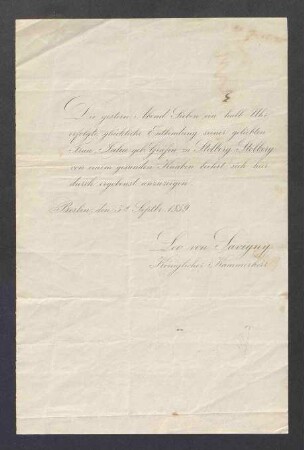 Die gestern Abend Sieben ein halb Uhr
erfolgte glückliche Entbindung seiner geliebten
Frau, geb. Gräfin zu Stolberg-Stolberg
von einem gesunden Knaben beehrt sich hier-
durch ergebenst anzuzeigen
Berlin, den Septbr. 1859
Leo von Savigny
Königlicher Kammerherr